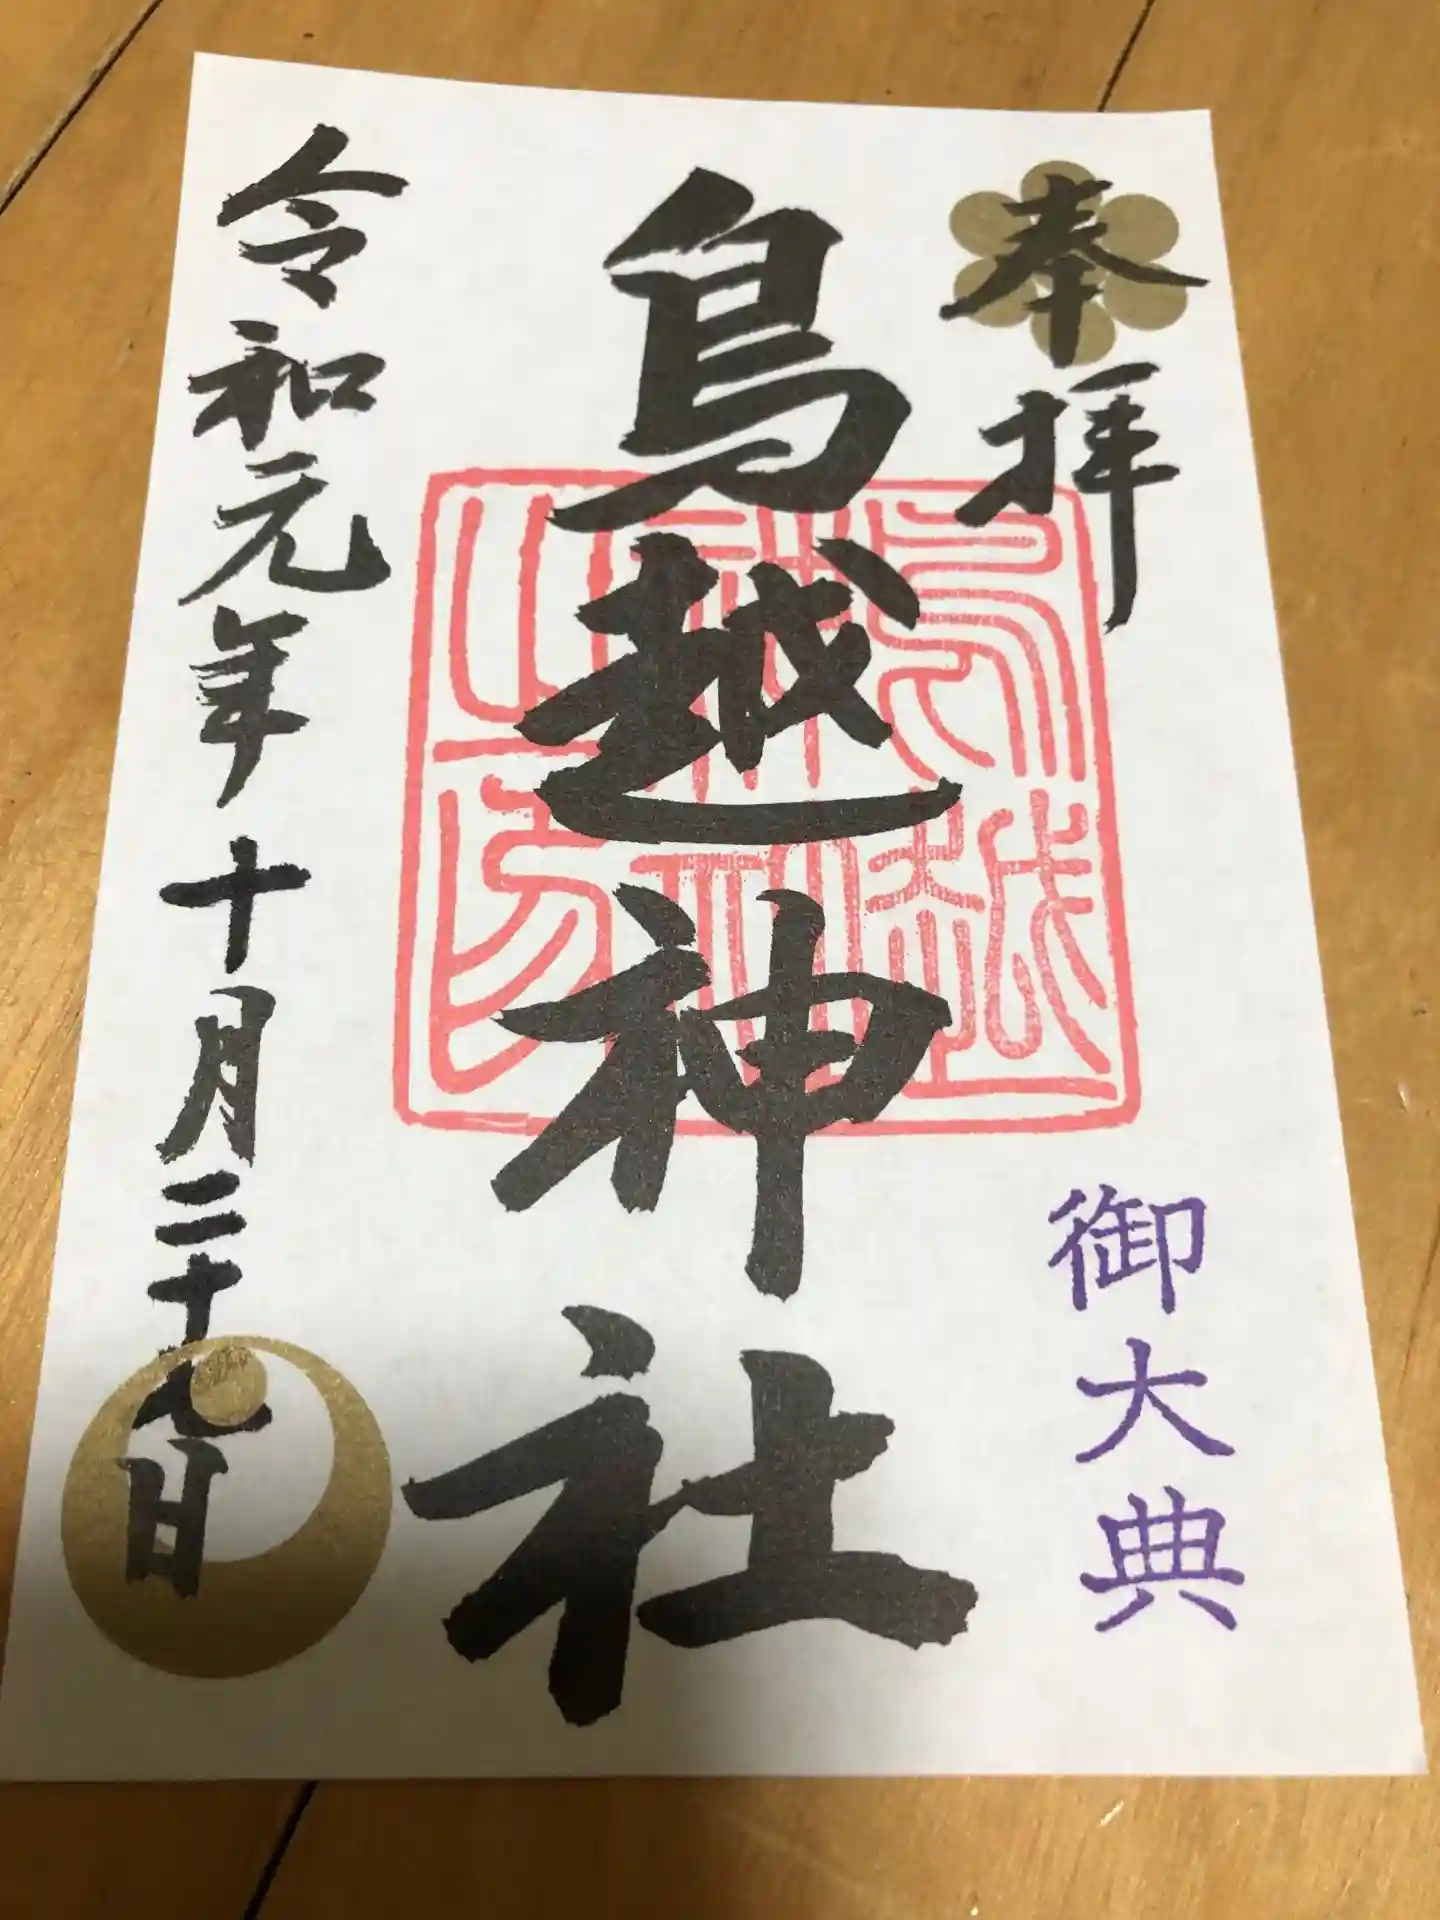 奉拝
御大典
鳥越神社
鳥越神社之印
令和元年十月二十九日